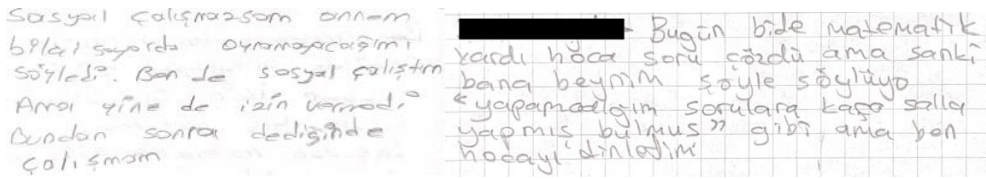 Sosyal çalışmazsam annem
bilgisayarda oynamayacağımı
söyledi. Ben de sosyal çalıştım
Ama yine de izin vermedi
Bundan sonra dediğinde
çalışmam
Bugün bide matematik
vardı hoca soru çözdü ama sanki
bana beynim şöyle söylüyo
"yapamadığım sorulara kafa salla
yapmış bulmuş" gibi ama ben
hocayı dinledim